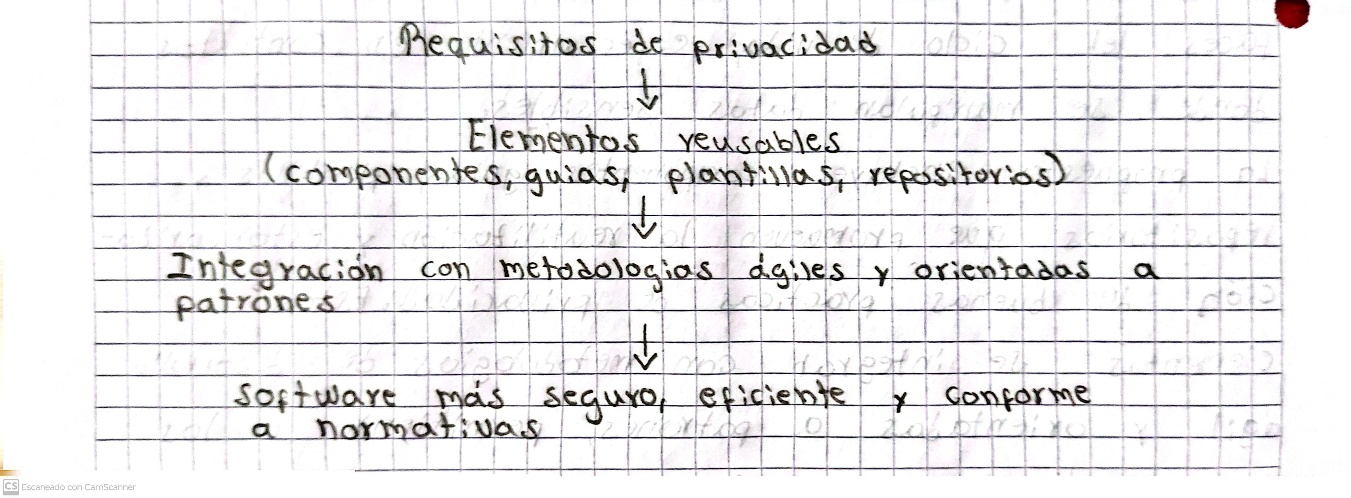 Requisitos de privacidad
↓
Elementos reusables
(componentes, guias, plantillas, repositorios)
↓
Integración con metodologias ágiles y orientadas a
patrones
↓
Software más seguro, eficiente y conforme
a normativas
CS Escaneado con CamScanner